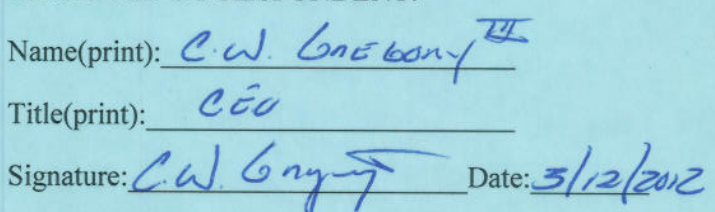 Name(print): C.W. Gregory III
Title(print): CEO
Signature: C.W. Gregory Date: 3/12/2012